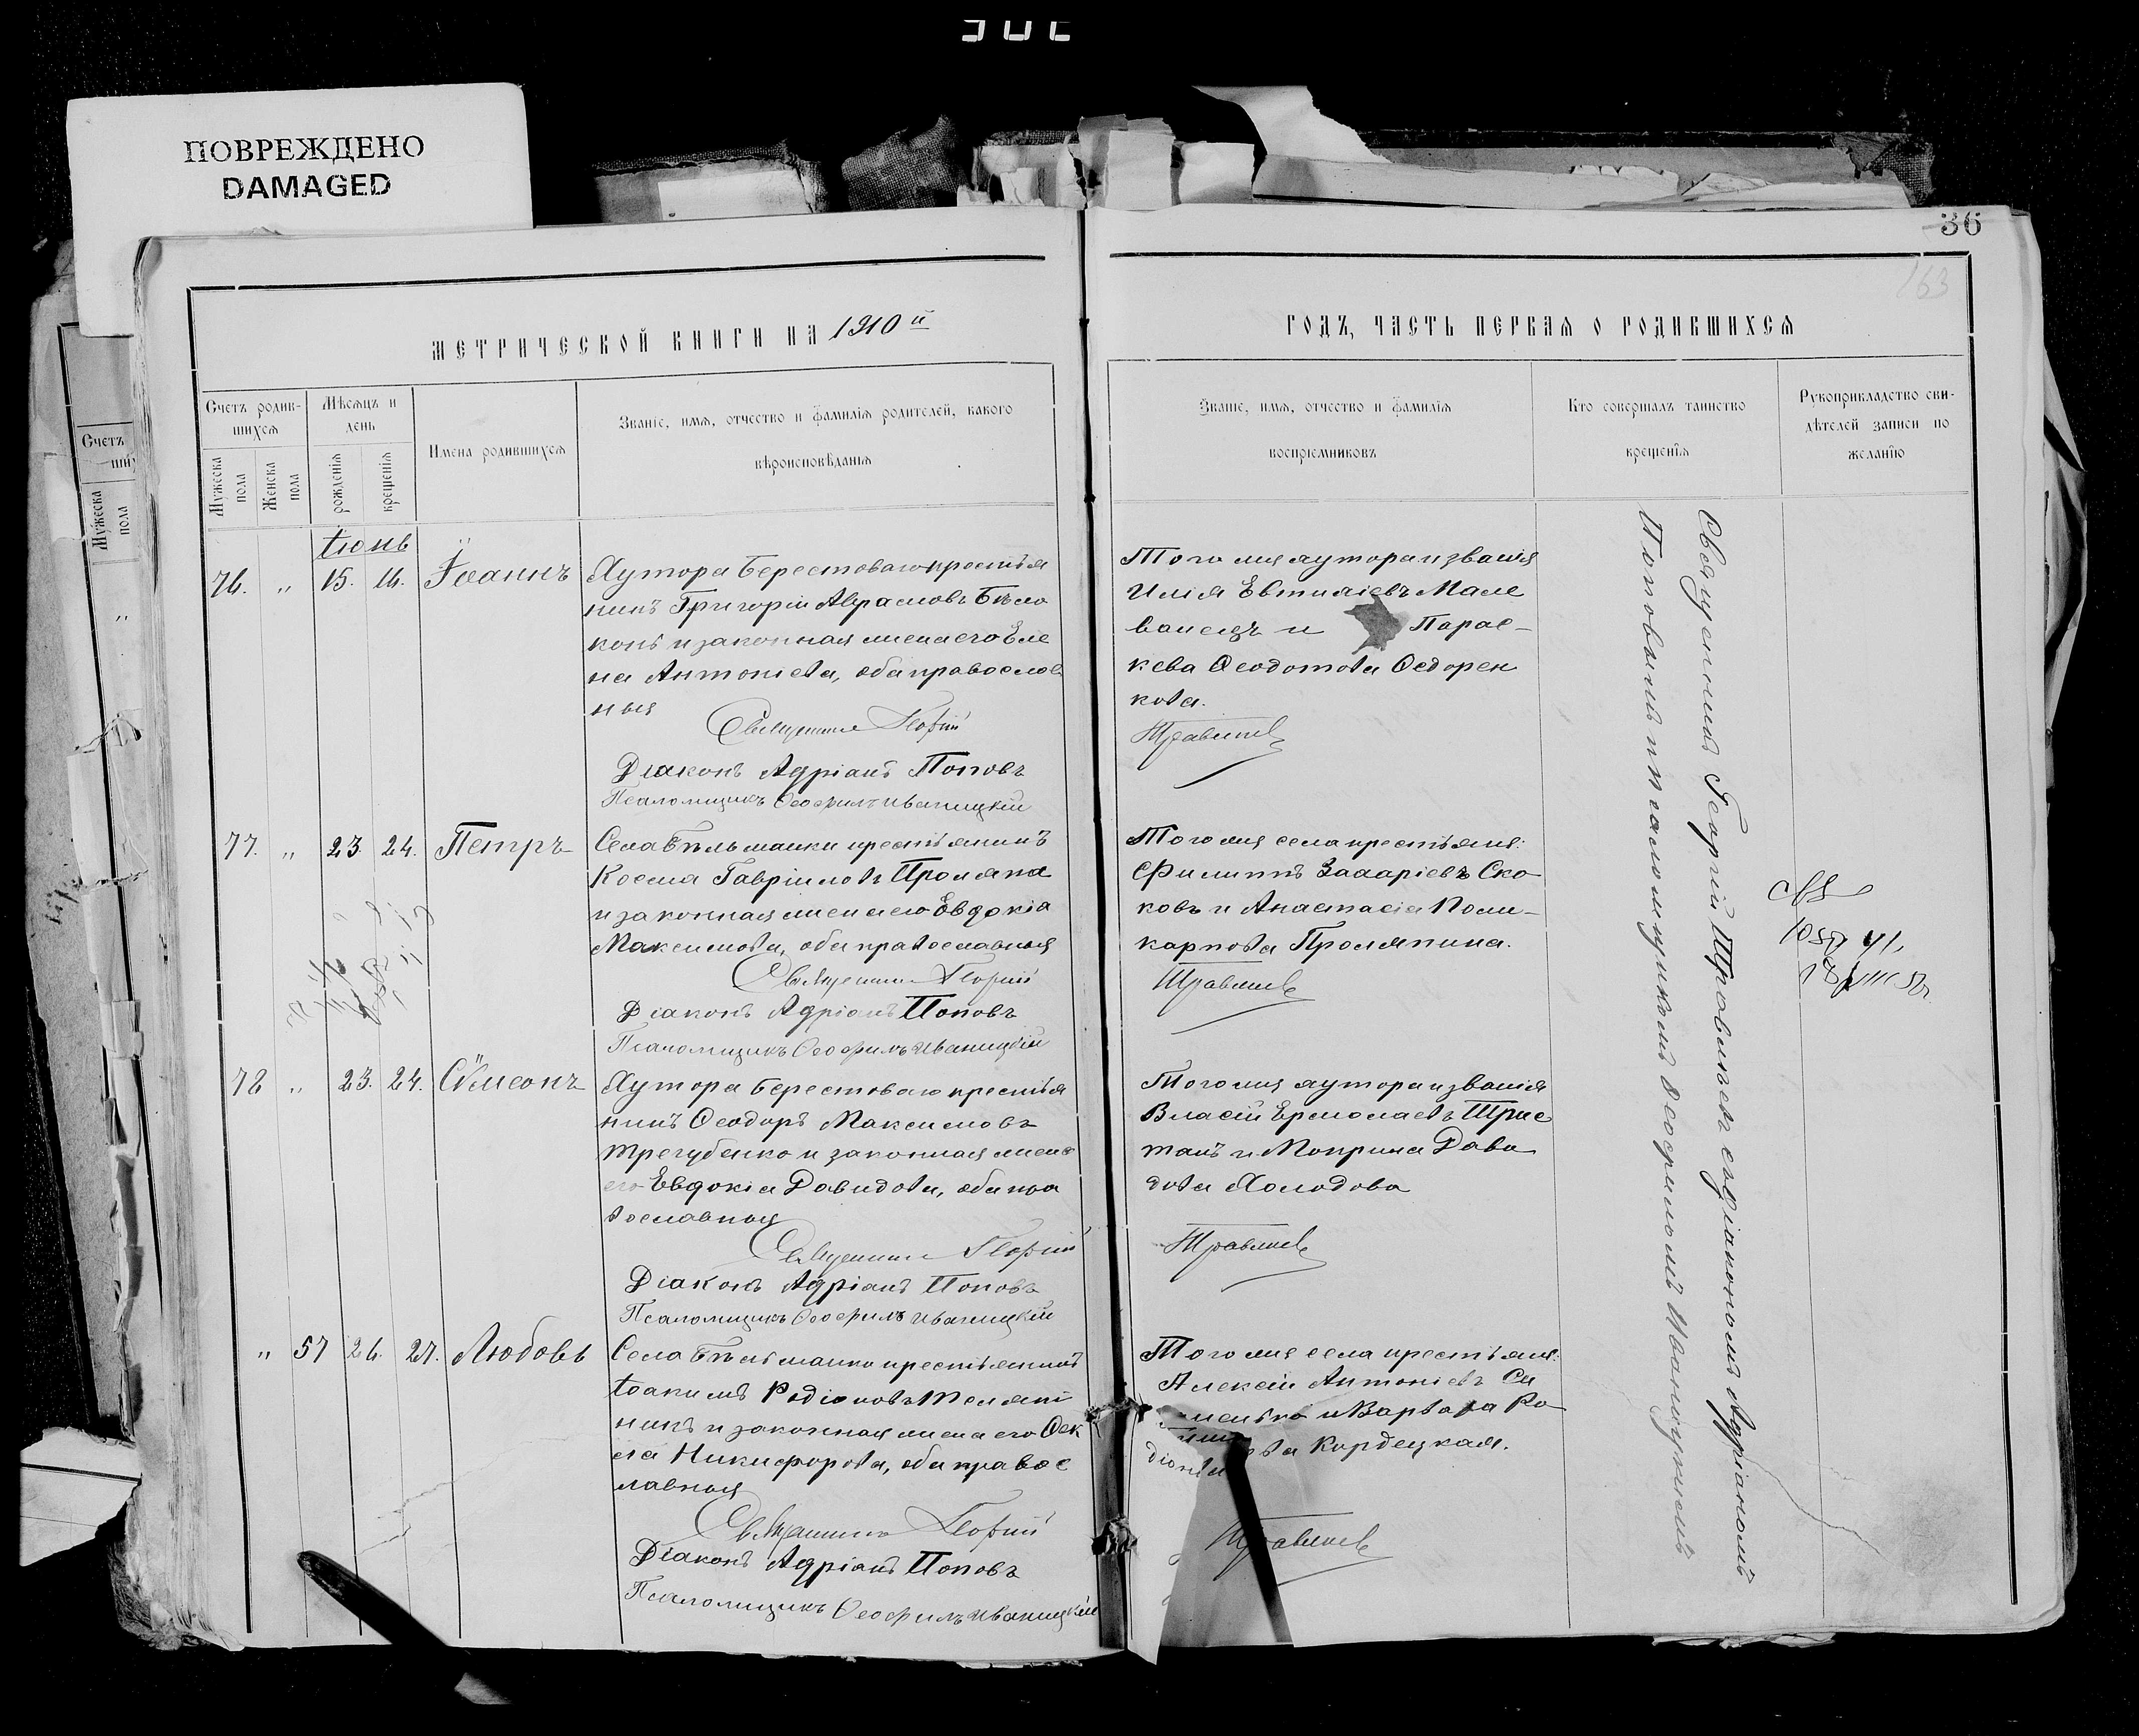 ПОВРЕЖДЕНО
DAMAGED
36
163
МЕТРИЧЕСКОЙ КНИГИ НА 1910 й
ГОДЪ, ЧАСТЬ ПЕРВАЯ О РОДИВШИХСЯ
Счетъ родив-
шихся
Мужеска пола
Женска пола
Мѣсяцъ и
день
рожденія
крещенія
Имена родившихся
Званіе, имя, отчество и фамилія родителей, какого
вѣроисповѣданія
Званіе, имя, отчество и фамилія
воспріемниковъ
Кто совершалъ таинство
крещенія
Рукоприкладство сви-
дѣтелей записи по
желанію
Счетъ
ши
Мужеска
пола
Іюнь
76. " 15. 16. Іоаннъ
Хутора Берестоваго крестья
нинъ Григорій Авраамовъ Бѣло
конь и законная жена его Еле
на Антоніева, оба православ
ныя
Священникъ Георгій
Діаконъ Адріанъ Поповъ
Псаломщикъ Ѳеофилъ Иваницкій
Того же хутора и званія
Илія Евтихіевъ Мале
ванецъ и Парас-
кева Ѳеодотова Ѳедорен
кова.
Травлевъ
77. " 23. 24. Петръ
Села Бѣльманки крестьянинъ
Косма Гавріиловъ Проляпа
и законная жена его Евдокія
Максимова, оба православныя
Священникъ Георгій
Діаконъ Адріанъ Поповъ
Псаломщикъ Ѳеофилъ Иваницкій
Того же села крестьяне:
Филиппъ Захаріевъ Ско
ковъ и Анастасія Поли-
карпова Проляпина.
78 " 23. 24. Сѵмеонъ
Хутора Берестоваго крестья
нинъ Ѳеодоръ Максимовъ
Трегубенко и законная жена
его Евдокія Давидова, оба пра
вославныя
Священникъ Георгій
Діаконъ Адріанъ Поповъ
Псаломщикъ Ѳеофилъ Иваницкій
Того же хутора и званія
Власій Ермолаевъ Трис
танъ и Мокрина Дави
дова Холодова
" 57 26. 27. Любовь
Села Бѣльманки крестьянинъ
Іоакимъ Родіоновъ
и законная жена его Ѳек
ла Никифорова, оба правос
лавныя
Священникъ Георгій
Діаконъ Адріанъ Поповъ
Псаломщикъ Ѳеофилъ Иваницкій
Того же села крестьяне:
Алексій Антоніевъ
и Варвара Ро
Кордецкая.
Священникъ Георгій съ діакономъ Адріаномъ
Поповымъ и псаломщикомъ Ѳеофиломъ Иваницкимъ